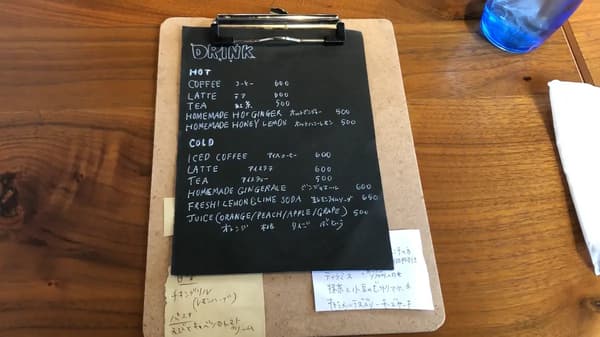 DRINK
HOT
COFFEE コーヒー 600
LATTE ラテ 600
TEA 紅茶 500
HOMEMADE HOT GINGER ホットジンジャー 500
HOMEMADE HONEY LEMON ホットハニーレモン 500
COLD
ICED COFFEE アイスコーヒー 600
LATTE アイスラテ 600
TEA アイスティー 500
HOMEMADE GINGERALE ジンジャエール 600
FRESH LEMON&LIME SODA 650
JUICE (ORANGE/PEACH/APPLE/GRAPE) 500
オレンジ 桃 りんご ぶどう
チキングリル
(レモンハーブ)
パスタ
クリーム
抹茶と小豆の